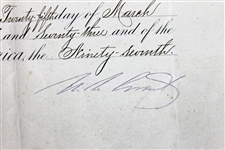 Twenty-fifth day of March
and Seventy-three and of the
rica, the Ninety-seventh
U. S. Grant